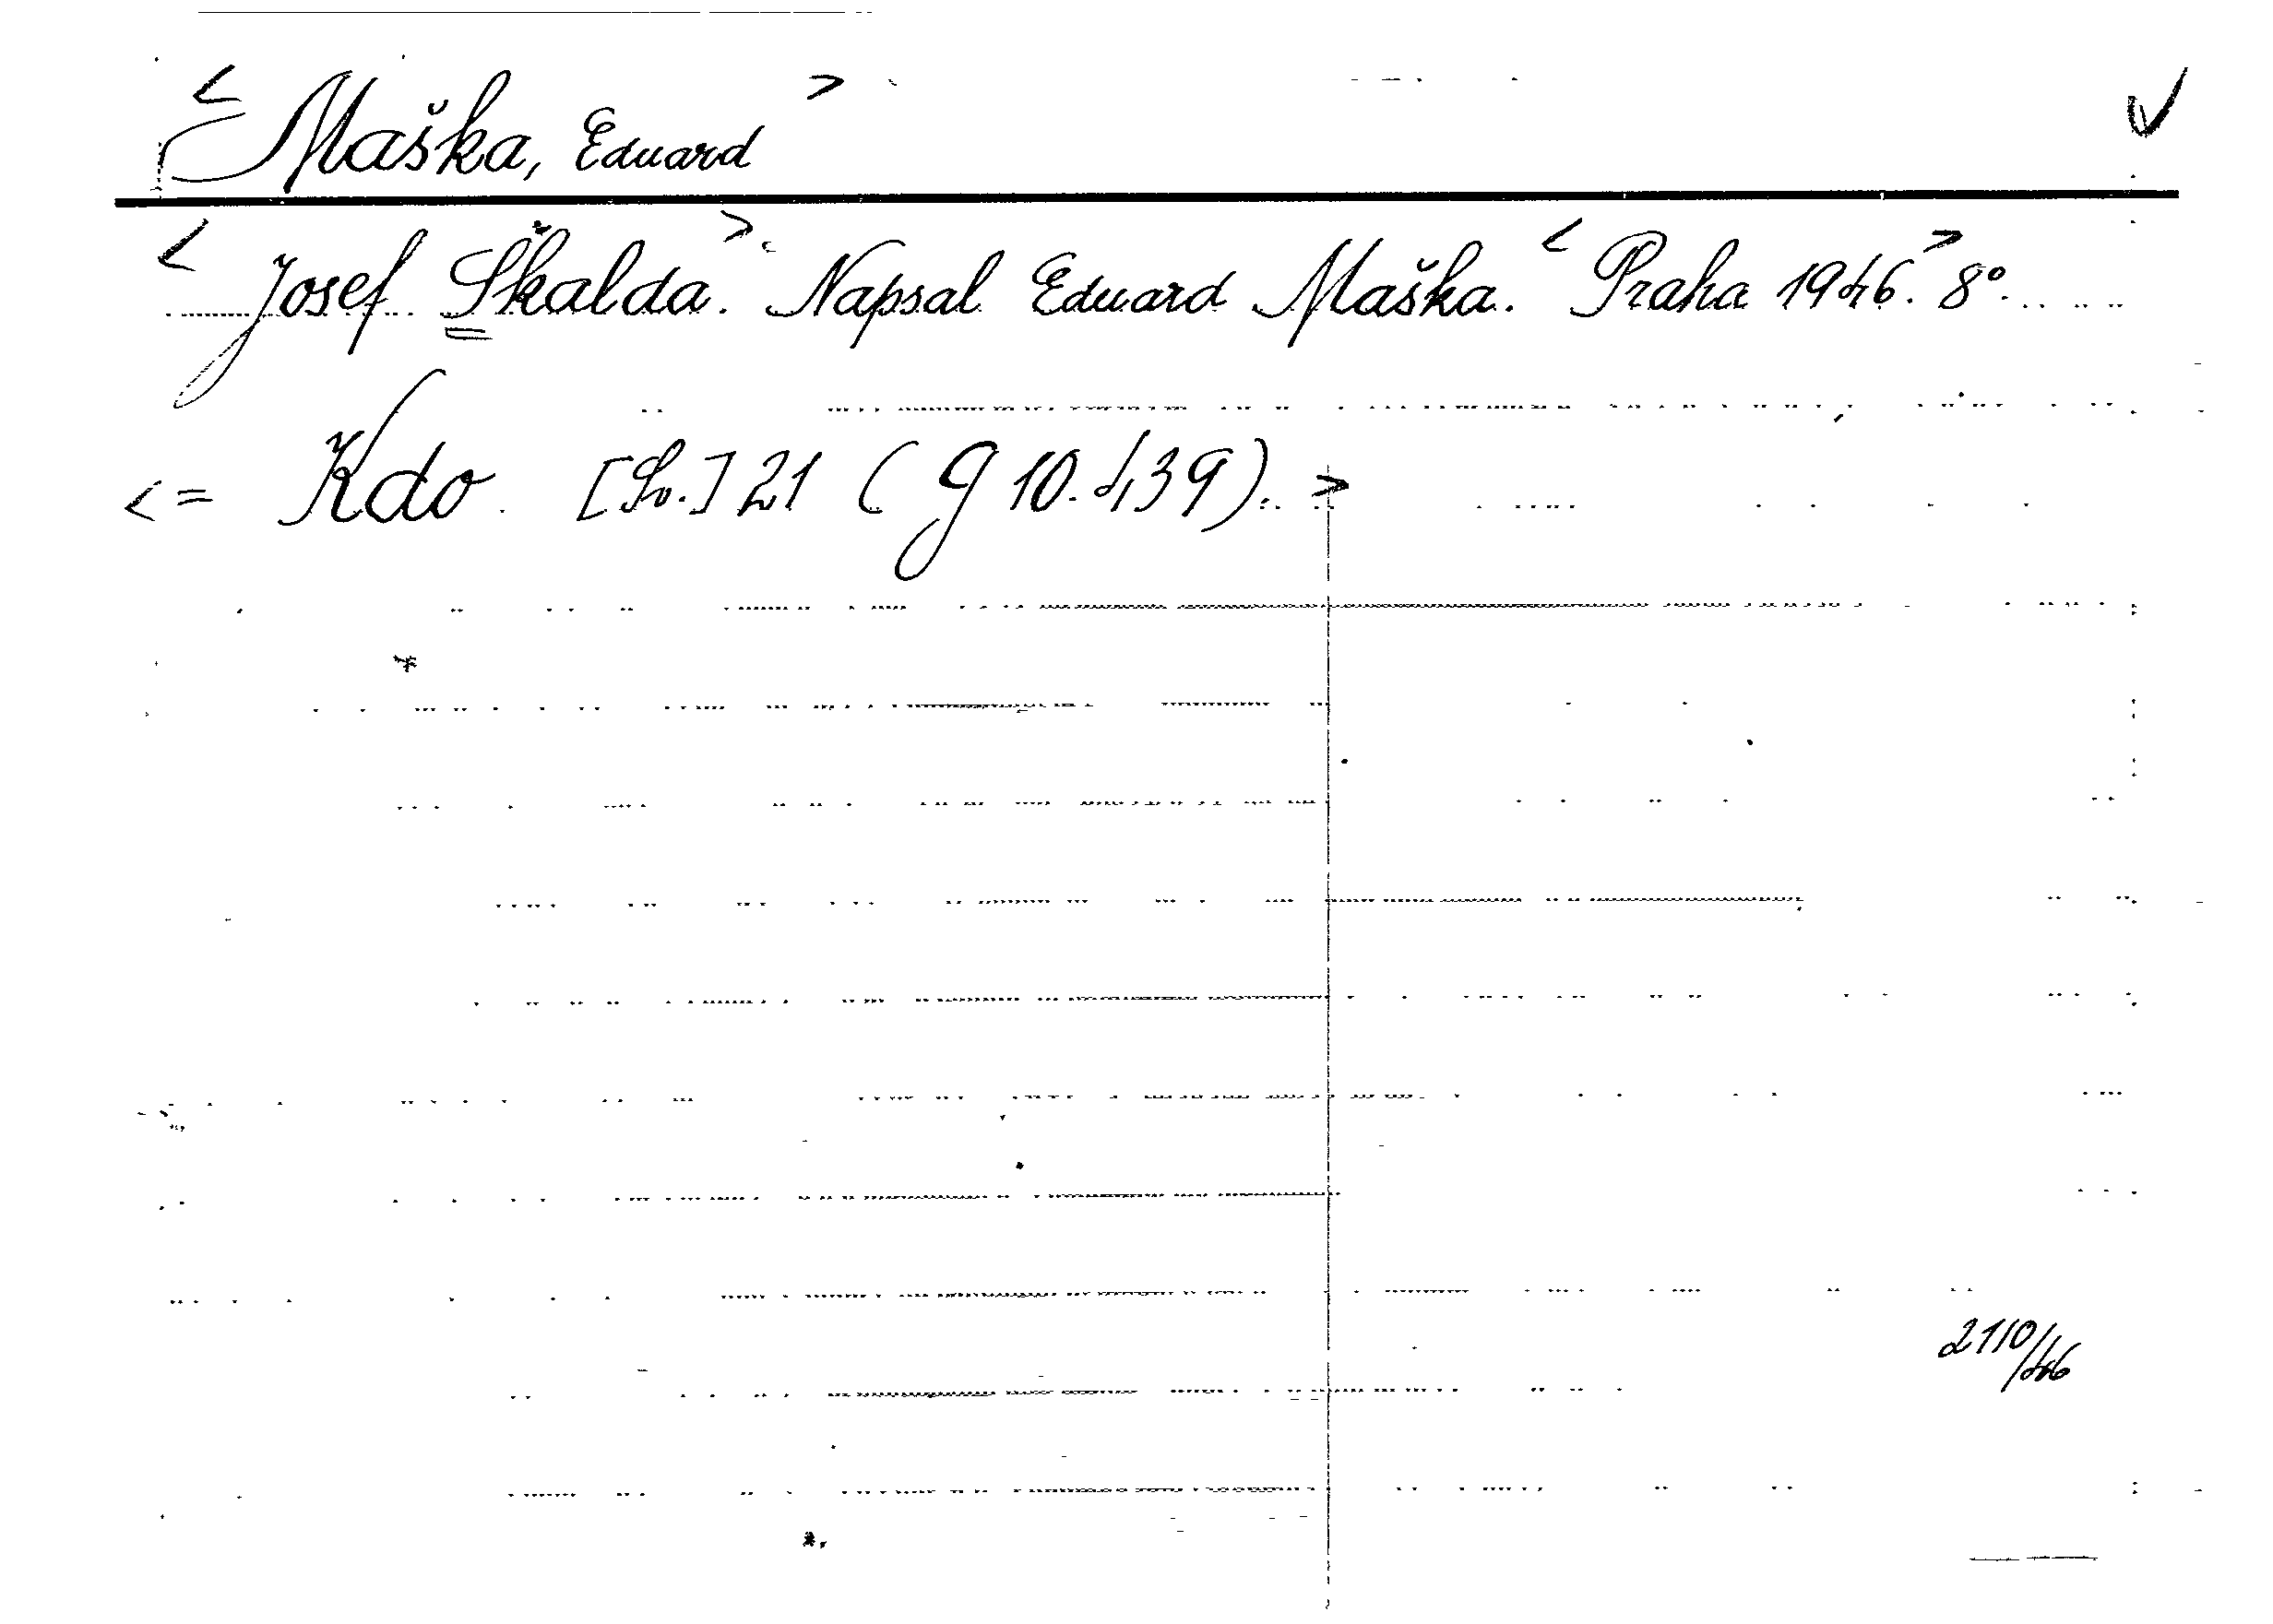 < Maška, Eduard > ✓
< Josef Škalda. > Napsal Eduard Maška. < Praha 1946. > 8°.
< = Kdo. [Sv.] 21 (g 10.439). >
2110/46